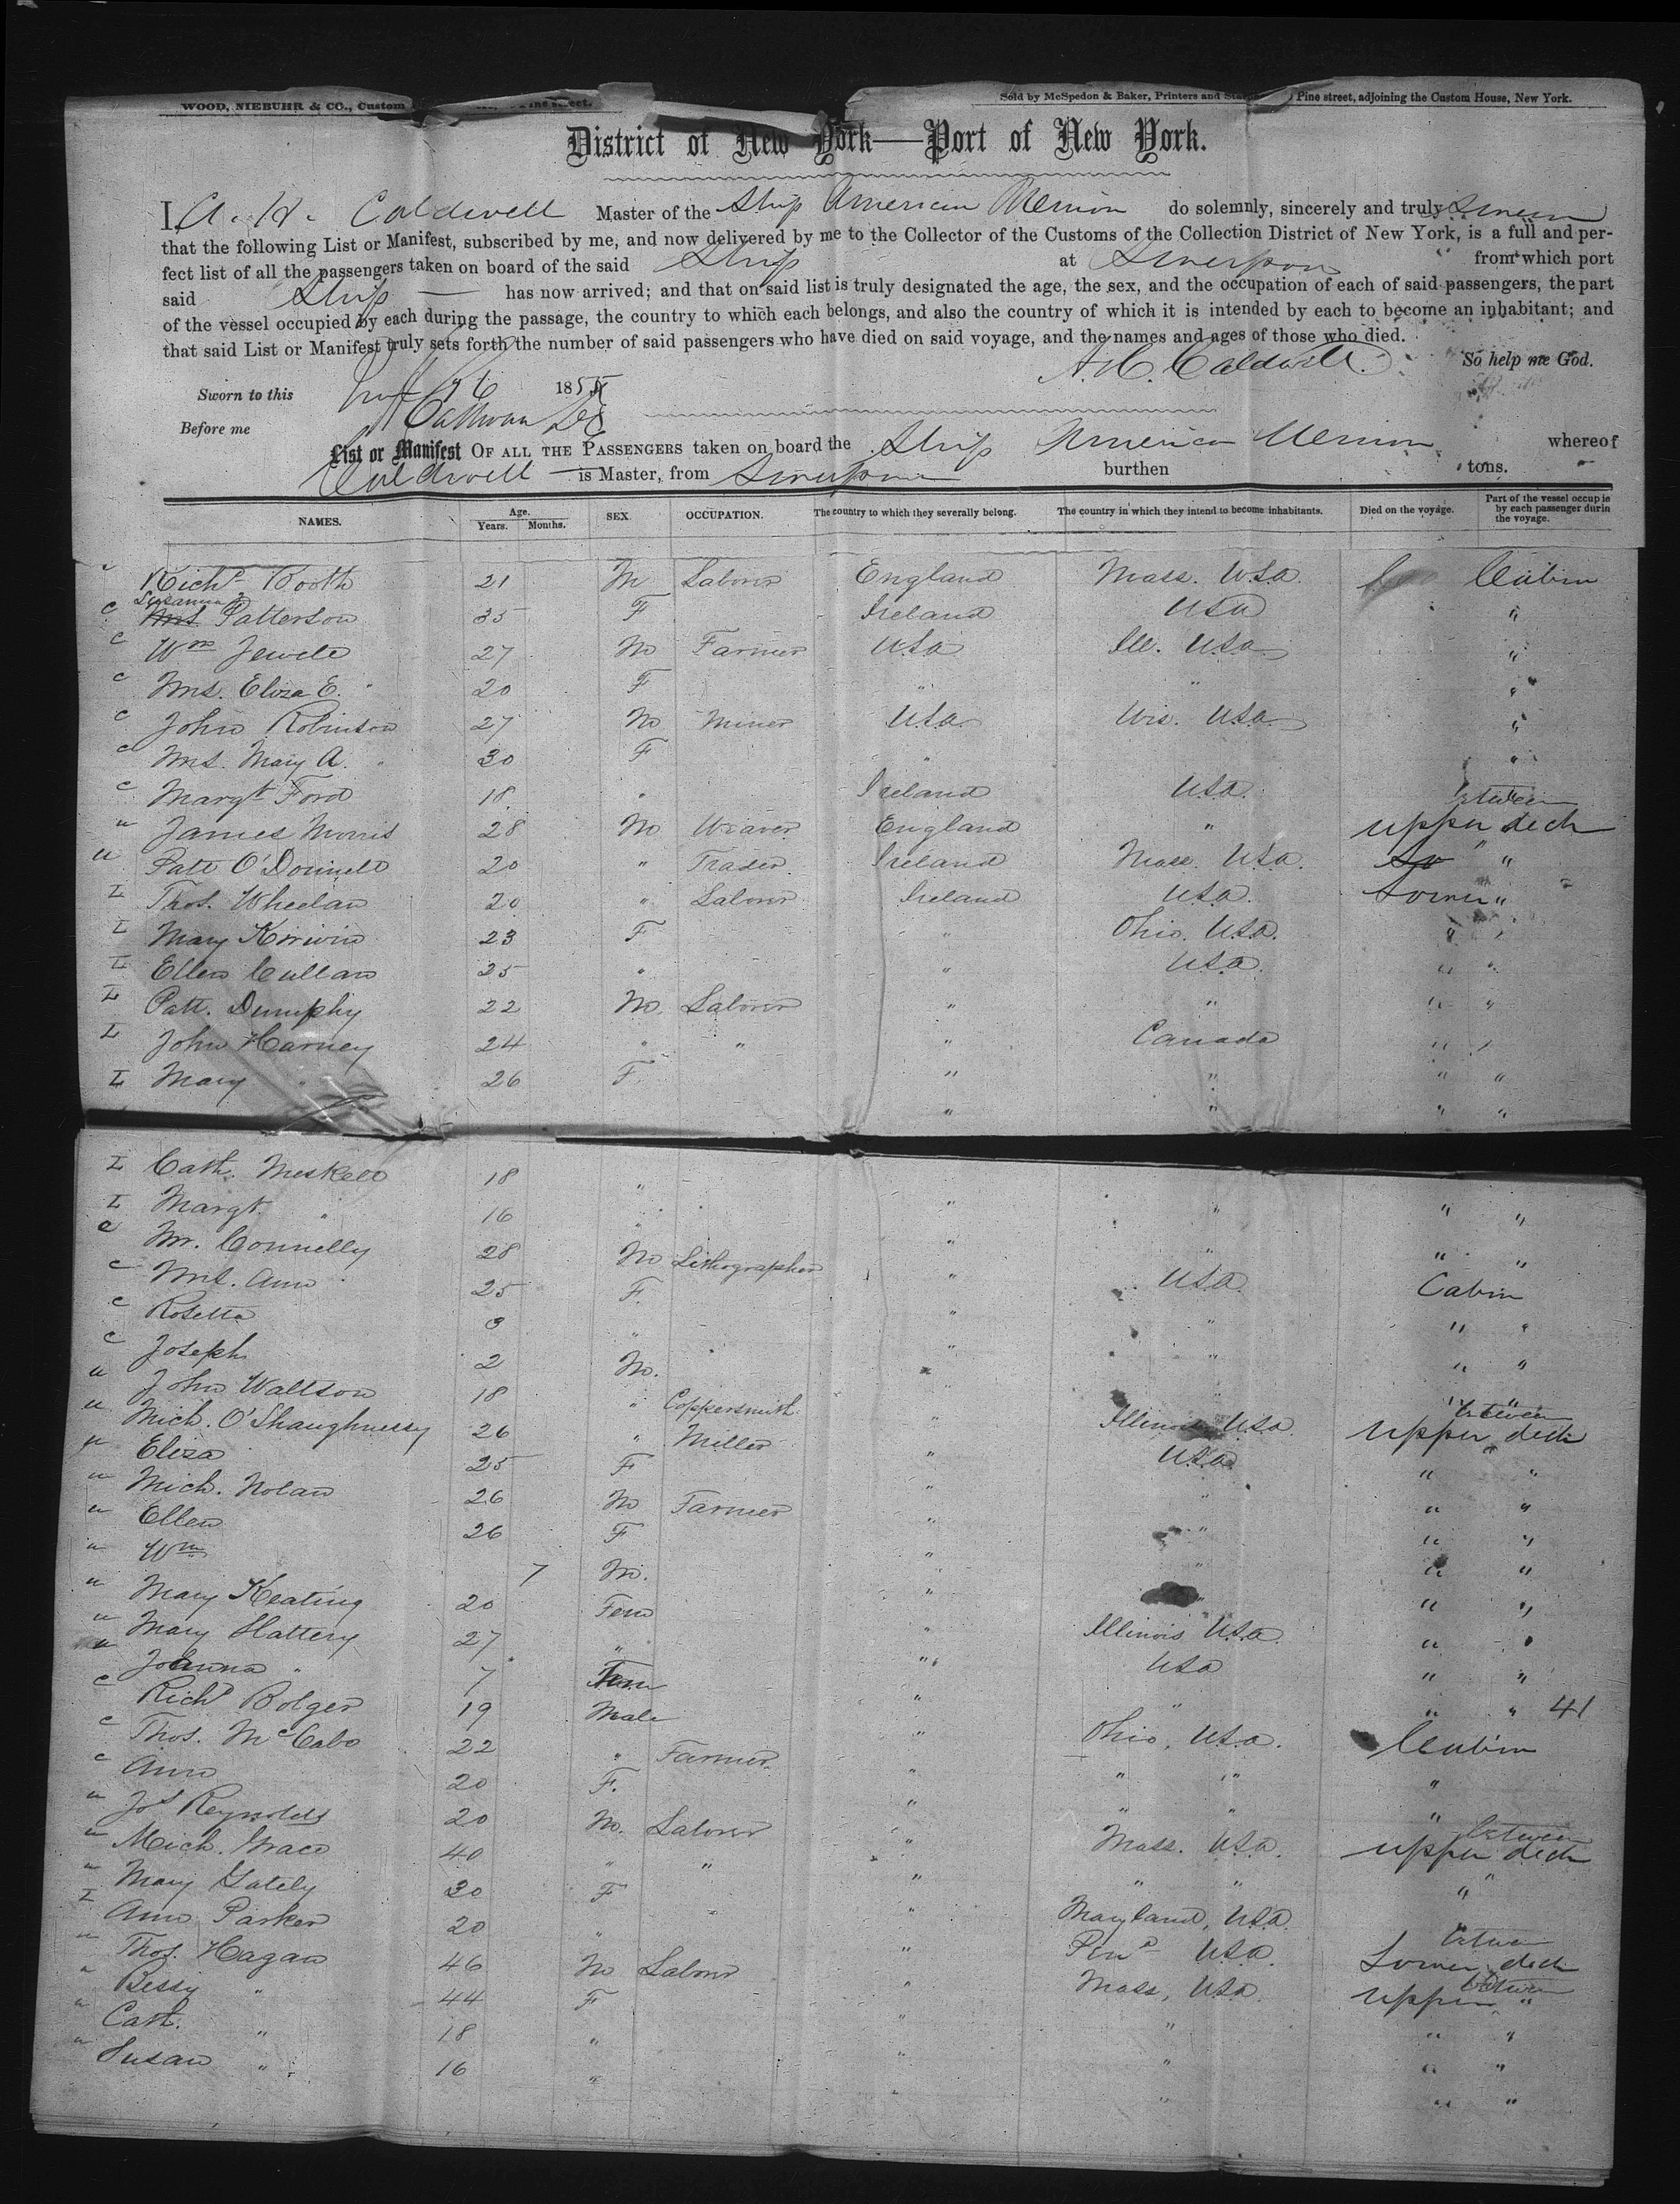 WOOD, NIEBUHR & CO., Custom Pine street.
Sold by McSpedon & Baker, Printers and Pine street, adjoining the Custom House, New York.
District of New York—Port of New York.
I, A. H. Caldwell Master of the Ship American Union do solemnly, sincerely and truly swear
that the following List or Manifest, subscribed by me, and now delivered by me to the Collector of the Customs of the Collection District of New York, is a full and per-
fect list of all the passengers taken on board of the said Ship at Liverpool from which port
said Ship — has now arrived; and that on said list is truly designated the age, the sex, and the occupation of each of said passengers, the part
of the vessel occupied by each during the passage, the country to which each belongs, and also the country of which it is intended by each to become an inhabitant; and
that said List or Manifest truly sets forth the number of said passengers who have died on said voyage, and the names and ages of those who died.
A. H. Caldwell. So help me God.
Sworn to this 16 1855
Before me
List or Manifest OF ALL THE PASSENGERS taken on board the Ship American Union whereof
Caldwell — is Master, from Liverpool burthen tons.
NAMES. Age. Years. Months. SEX OCCUPATION. The country to which they severally belong. The country in which they intend to become inhabitants. Died on the voyage. Part of the vessel occup ie by each passenger durin the voyage.
" Richd Booth 21 M Laborer England Mass. USA. Cabin
Susanna
c Mrs Patterson 35 F Ireland USA "
c Wm Jewele 27 M Farmer USA Ill. USA "
c Mrs. Eliza E. " 20 F " " "
c John Robinson 27 M Miner USA Wis. USA "
c Mrs. Mary A. " 30 F " "
c Margt Ford 18 " Ireland USA. "
between
u James Morris 28 M Weaver England " Upper deck
u Patt O'Donnell 20 " Trader Ireland Mass. USA. do " "
L Thos. Wheelan 20 " Laborer Ireland USA. Lower "
L Mary Kirwin 23 F " Ohio. USA. " "
L Ellen Cullan 25 " " USA. " "
L Patt. Dumphy 22 M. Laborer " " " "
L John Harney 24 " " " Canada " "
L Mary " 26 F. " " " "
" " " "
L Cath. Meskell 18 " " " " "
L Margt. " 16 " " " " "
c Mr. Connelly 28 M Lithographer " USA. Cabin
c Mrs. Ann 25 F. " " " "
c Rosetta 3 " " " " "
c Joseph 2 M. " " " "
u John Waltson 18 " Coppersmith " Illinois USA. between Upper deck
u Mich. O'Shaughnessy 26 " Miller " USA " "
u Eliza 25 F " " " "
u Mich. Nolan 26 M Farmer " " " "
u Ellen 26 F " " " "
u Wm 7 M. " " " "
u Mary Keating 20 Fem " Illinois USA. " "
u Mary Slattery 27 " " USA " "
u Johanna " 7 Fem " " " " 41
c Richd Bolger 19 Male " Ohio, USA. Cabin
c Thos. McCabe 22 " Farmer " " " "
c Ann 20 F. " " " "
u Jos Reynolds 20 M. Laborer " Mass. USA. between Upper deck
u Mich. Grace 40 " " " " " "
u Mary Gately 30 F " Maryland, USA.
L Ann Parker 20 " " Pena USA. between Lower deck
u Thos. Hagan 46 M Laborer " Mass, USA. between Upper "
u Bessy " 44 F " " " "
u Cath. " 18 " " " " "
u Susan " 16 " " " " "